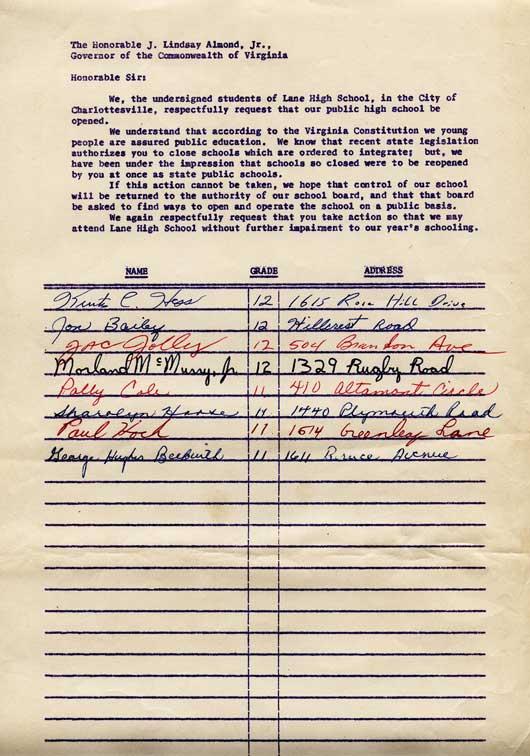 The Honorable J. Lindsay Almond, Jr.,
Governor of the Commonwealth of Virginia
Honorable Sir:
We, the undersigned students of Lane High School, in the City of
Charlottesville, respectfully request that our public high school be
opened.
We understand that according to the Virginia Constitution we young
people are assured public education. We know that recent state legislation
authorizes you to close schools which are ordered to integrate; but, we
have been under the impression that schools so closed were to be reopened
by you at once as state public schools.
If this action cannot be taken, we hope that control of our school
will be returned to the authority of our school board, and that that board
be asked to find ways to open and operate the school on a public basis.
We again respectfully request that you take action so that we may
attend Lane High School without further impairment to our year's schooling.
NAME GRADE ADDRESS
C. Hess 12 1615 Rose Hill Drive
Jon Bailey 12 Hillcrest Road
Jolley 12 504 Brandon Ave
Morland McMurry, Jr. 12 1329 Rugby Road
Polly Cole 11 410 Altamont Circle
Sharolyn 11 1440 Plymouth Road
Paul Hoch 11 1614 Greenley Lane
George Hughes Beckwith 11 1611 Bruce Avenue